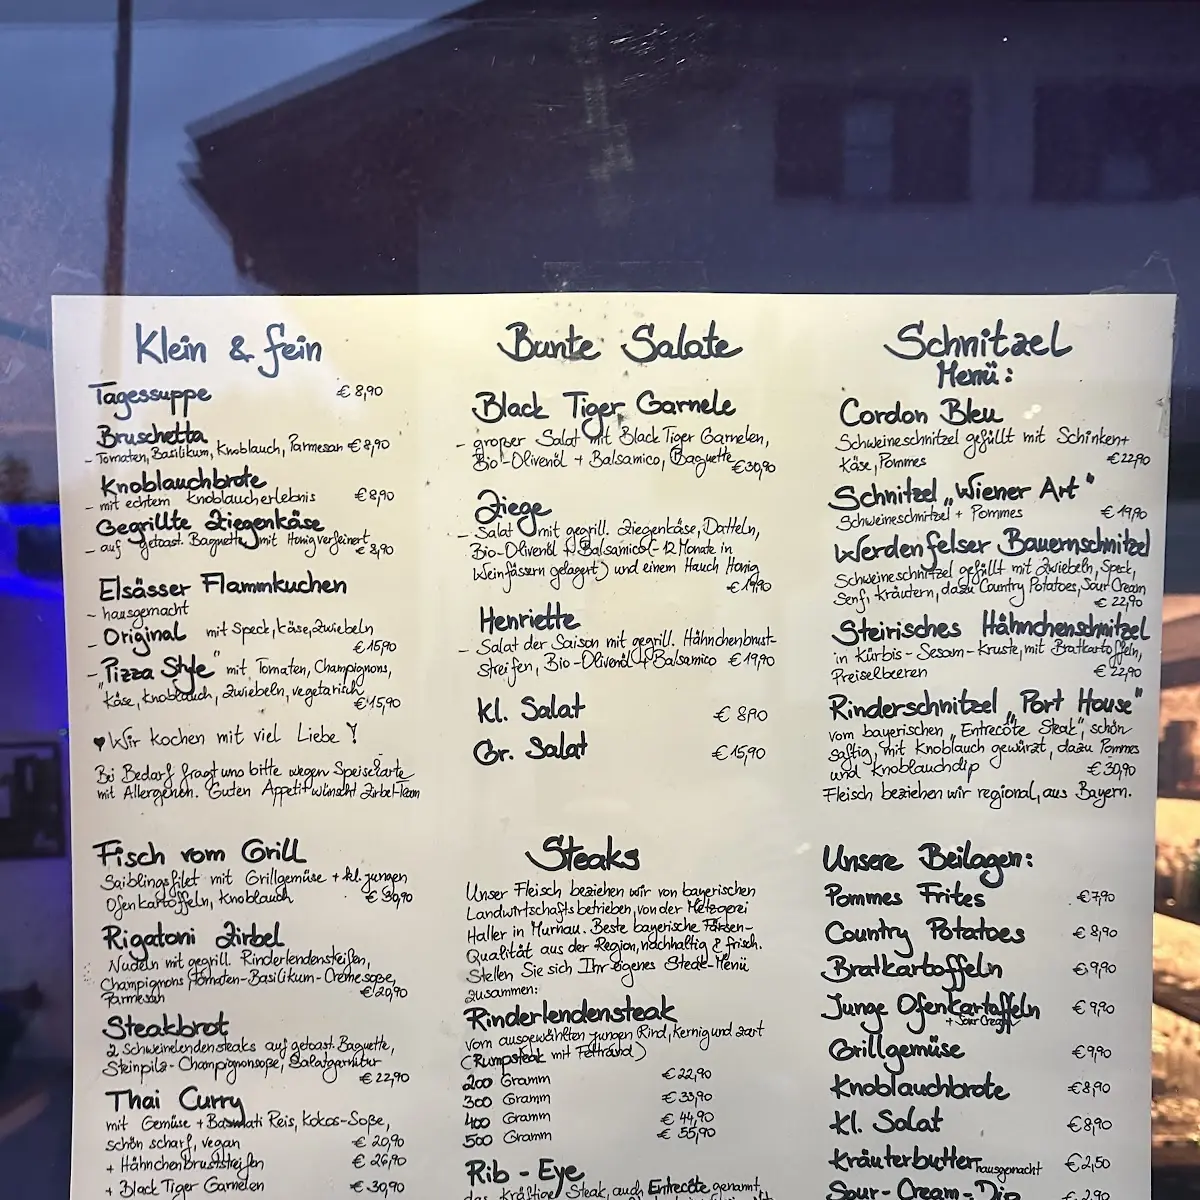 Klein & fein
Tagessuppe € 8,90
Bruschetta
- Tomaten, Basilikum, Knoblauch, Parmesan € 8,90
Knoblauchbrote
- mit echtem Knoblaucherlebnis € 8,90
Gegrillte Ziegenkäse
- auf getoast. Baguette mit Honig verfeinert
€ 8,90
Elsässer Flammkuchen
- hausgemacht
- Original mit Speck, Käse, Zwiebeln
€ 15,90
- "Pizza Style" mit Tomaten, Champignons,
Käse, Knoblauch, Zwiebeln, vegetarisch
€ 15,90
♥ Wir kochen mit viel Liebe!
Bei Bedarf fragt uns bitte wegen Speisekarte
mit Allergenen. Guten Appetit wünscht Zirbel-Team
Fisch vom Grill
Saiblingsfilet mit Grillgemüse + kl. jungen
Ofenkartoffeln, Knoblauch € 30,90
Rigatoni Zirbel
Nudeln mit gegrill. Rinderlendensteifen,
Champignons Tomaten-Basilikum-Cremesoße,
Parmesan € 20,90
Steakbrot
2 Schweinelendensteaks auf getoast. Baguette,
Steinpilz-Champignonsoße, Salatgarnitur
€ 22,90
Thai Curry
mit Gemüse + Basmati Reis, Kokos-Soße,
schön scharf, vegan € 20,90
+ Hähnchenbruststreifen € 26,90
+ Black Tiger Garnelen € 30,90
Bunte Salate
Black Tiger Garnele
- großer Salat mit Black Tiger Garnelen,
Bio-Olivenöl + Balsamico, Baguette € 30,90
Ziege
- Salat mit gegrill. Ziegenkäse, Datteln,
Bio-Olivenöl + Balsamico (- 12 Monate in
Weinfässern gelagert) und einem Hauch Honig
€ 19,90
Henriette
- Salat der Saison mit gegrill. Hähnchenbrust-
streifen, Bio-Olivenöl + Balsamico € 19,90
Kl. Salat € 8,90
Gr. Salat € 15,90
Steaks
Unser Fleisch beziehen wir von bayerischen
Landwirtschaftsbetrieben, von der Metzgerei
Haller in Murnau. Beste bayerische Färsen-
Qualität aus der Region, nachhaltig & frisch.
Stellen Sie sich Ihr eigenes Steak-Menü
zusammen:
Rinderlendensteak
vom ausgewählten jungen Rind, kernig und zart
(Rumpsteak mit Fettrand)
200 Gramm € 22,90
300 Gramm € 33,90
400 Gramm € 44,90
500 Gramm € 55,90
Rib-Eye
das kräftige Steak, auch Entrecôte genannt,
Schnitzel
Menü:
Cordon Bleu
Schweineschnitzel gefüllt mit Schinken +
Käse, Pommes € 22,90
Schnitzel „Wiener Art"
Schweineschnitzel + Pommes € 19,90
Werdenfelser Bauernschnitzel
Schweineschnitzel gefüllt mit Zwiebeln, Speck,
Senf, Kräutern, dazu Country Potatoes, Sour Cream
€ 22,90
Steirisches Hähnchenschnitzel
in Kürbis-Sesam-Kruste, mit Bratkartoffeln,
Preiselbeeren € 22,90
Rinderschnitzel „Port House"
vom bayerischen „Entrecôte Steak", schön
saftig, mit Knoblauch gewürzt, dazu Pommes
und Knoblauchdip € 30,90
Fleisch beziehen wir regional, aus Bayern.
Unsere Beilagen:
Pommes Frites € 7,90
Country Potatoes € 8,90
Bratkartoffeln € 9,90
Junge Ofenkartoffeln € 9,90
+ Sour Cream
Grillgemüse € 9,90
Knoblauchbrote € 8,90
Kl. Salat € 8,90
Kräuterbutter hausgemacht € 2,50
Sour-Cream-Dip € 2,90